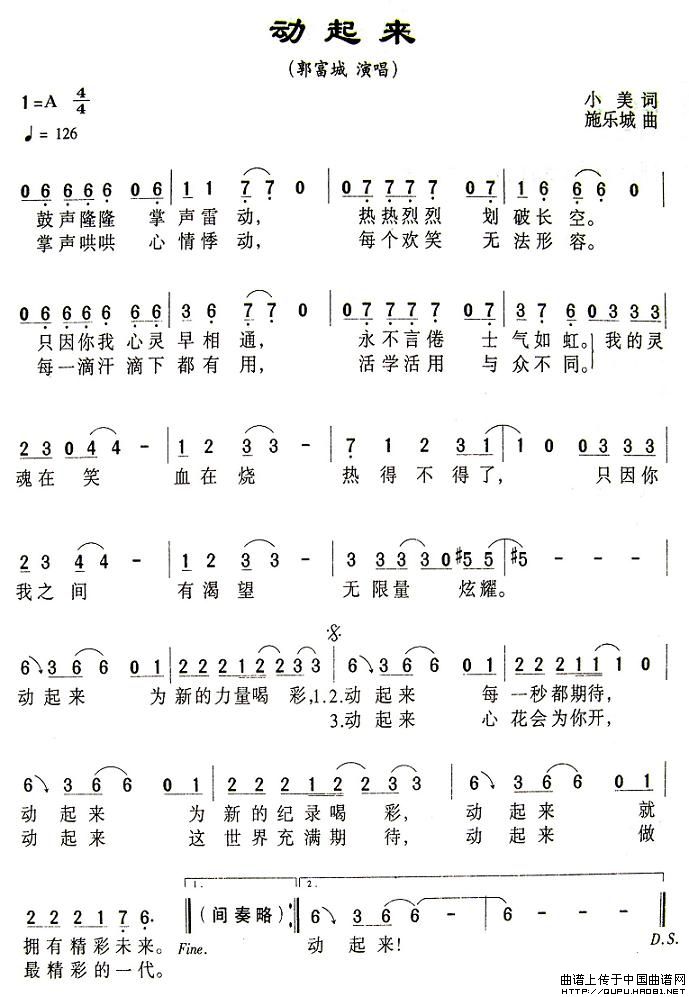 动起来
(郭富城 演唱)
1=A 4/4
小美词
♩= 126
施乐城曲
0 6 6 6 6 6 0 6 | 1 1 7 7 0 | 0 7 7 7 7 7 0 7 | 1 6 6 6 0 |
鼓声隆隆 掌声雷动, 热热烈烈 划破长空。
掌声哄哄 心情悸动, 每个欢笑 无法形容。
0 6 6 6 6 6 6 6 | 3 6 7 7 0 | 0 7 7 7 7 7 0 7 | 3 7 6 0 3 3 3 |
只因你我心灵早相通, 永不言倦 士气如虹。我的灵
每一滴汗滴下都有用, 活学活用 与众不同。
2 3 0 4 4 - | 1 2 3 3 - | 7 1 2 3 1 | 1 0 0 3 3 3 |
魂在笑 血在烧 热得不得了, 只因你
2 3 4 4 - | 1 2 3 3 - | 3 3 3 3 3 0 #5 5 | #5 - - - |
我之间 有渴望 无限量 炫耀。
6 3 6 6 0 1 | 2 2 2 1 2 2 3 3 | 6 3 6 6 0 1 | 2 2 2 1 1 1 0 |
动起来 为新的力量喝彩,1.2.动起来 每一秒都期待,
3.动起来 心花会为你开,
6 3 6 6 0 1 | 2 2 2 1 2 2 3 3 | 6 3 6 6 0 1 |
动起来 为新的纪录喝彩, 动起来 就
动起来 这世界充满期待, 动起来 做
1. 2.
2 2 2 1 7 6. (间奏略) 6 3 6 6 - - | 6 - - 0
拥有精彩未来。 Fine. 动起来! D.S.
最精彩的一代。
曲谱上传于中国曲谱网
HTTP://QUPU.HAO81.NET